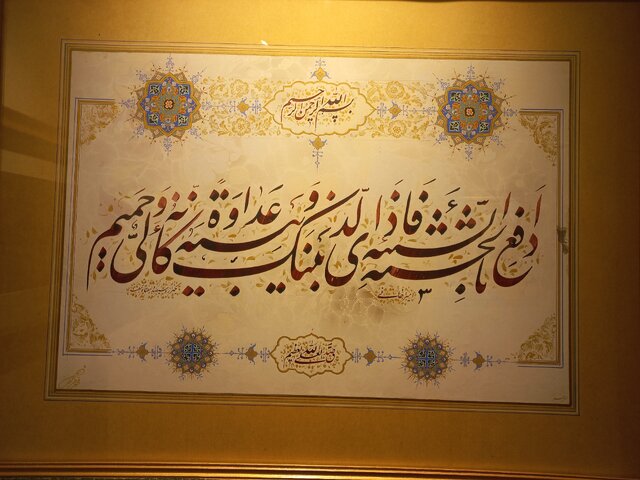 بسم الله الرحمن الرحیم
ادفع بالحسنه السّیئه فاذا الّذی بینک و بینه عداوة کأنّه ولیّ حمیم
صدق الله العلی العظیم